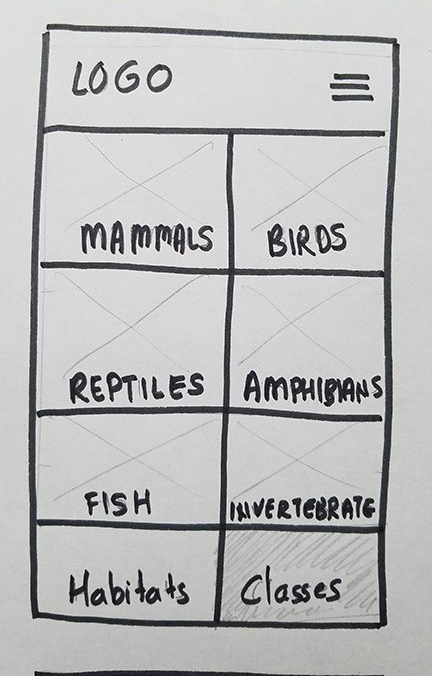 LOGO
MAMMALS BIRDS
REPTILES AMPHIBIANS
FISH INVERTEBRATE
Habitats Classes